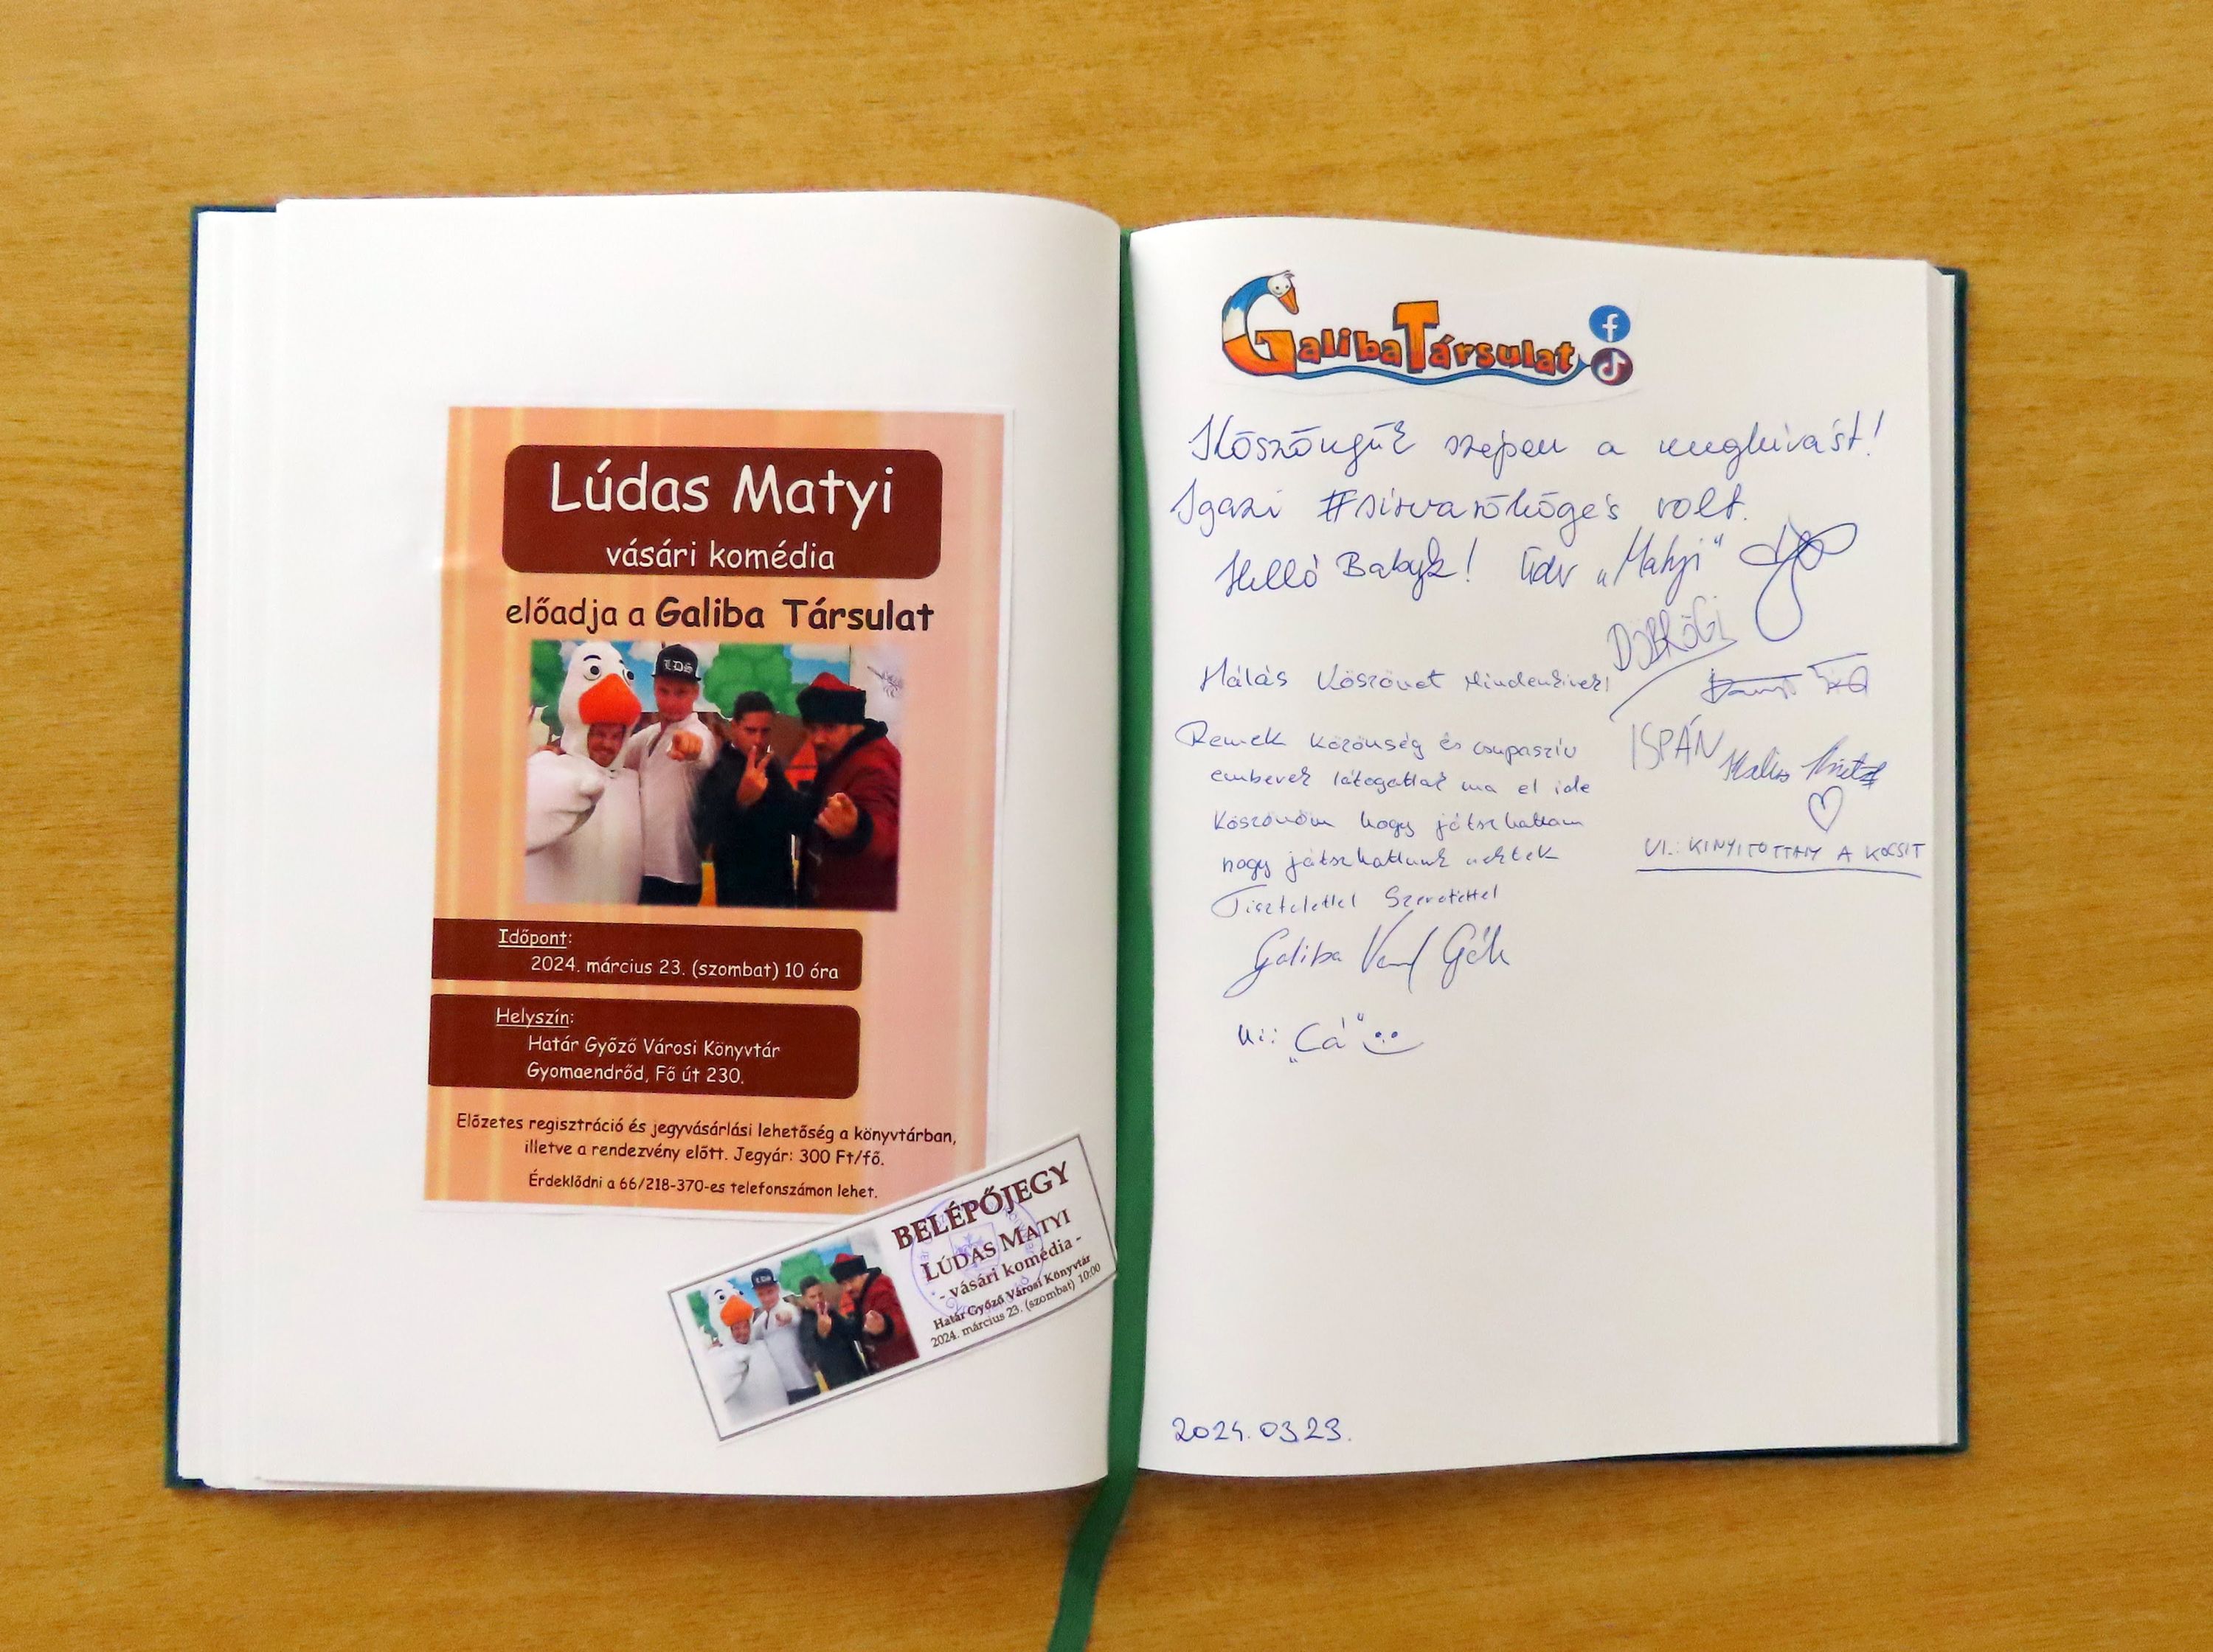 Lúdas Matyi
vásári komédia
előadja a Galiba Társulat
LDS
Időpont:
2024. március 23. (szombat) 10 óra
Helyszín:
Határ Győző Városi Könyvtár
Gyomaendrőd, Fő út 230.
Előzetes regisztráció és jegyvásárlási lehetőség a könyvtárban,
illetve a rendezvény előtt. Jegyár: 300 Ft/fő.
Érdeklődni a 66/218-370-es telefonszámon lehet.
BELÉPŐJEGY
LÚDAS MATYI
- vásári komédia -
Határ Győző Városi Könyvtár
2024. március 23. (szombat) 10:00
LDS
Galiba Társulat
Köszönjük szépen a meghívást!
Igazi #sírvaröhögés volt.
Helló Babyk! Üdv „Matyi"
DÖBRÖGI
Hálás Köszönet Mindenkinek!
ISPÁN
Remek közönség és csupaszív
emberek látogattak ma el ide
Köszönöm hogy játszhattam
hogy játszhattunk nektek
Tisztelettel Szeretettel
Galiba
UI.: KINYITOTTAM A KOCSIT
Ui: „Cá"
2024.03.23.